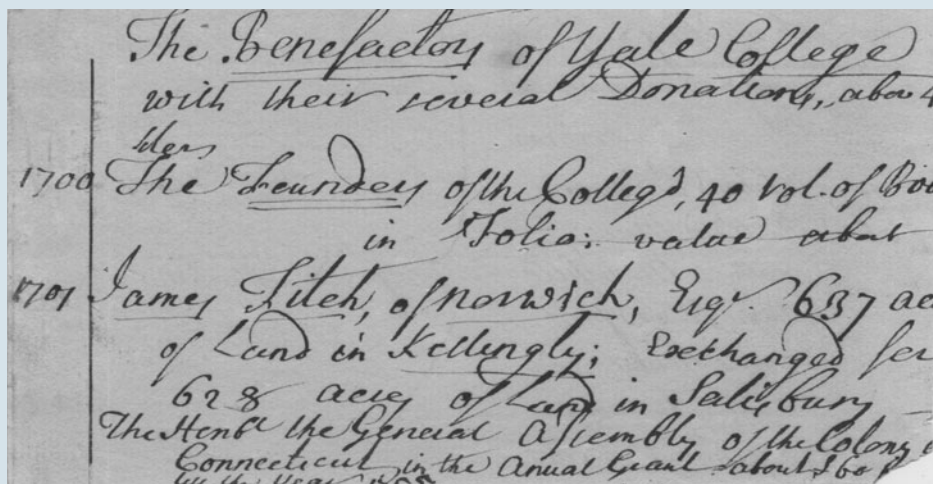 The Benefactors of Yale College
with their several Donations, abov
ders
1700 The Founders of the College, 40 Vol. of Boo
in Folio: value about
1701 James Fitch, of norwich, Esqr. 637 ac
of Land in Killingly; Exchanged for
628 acres of Land in Salisbury
The Honbl the General Assembly of the Colony
Connecticut in the Anual Grant about £60